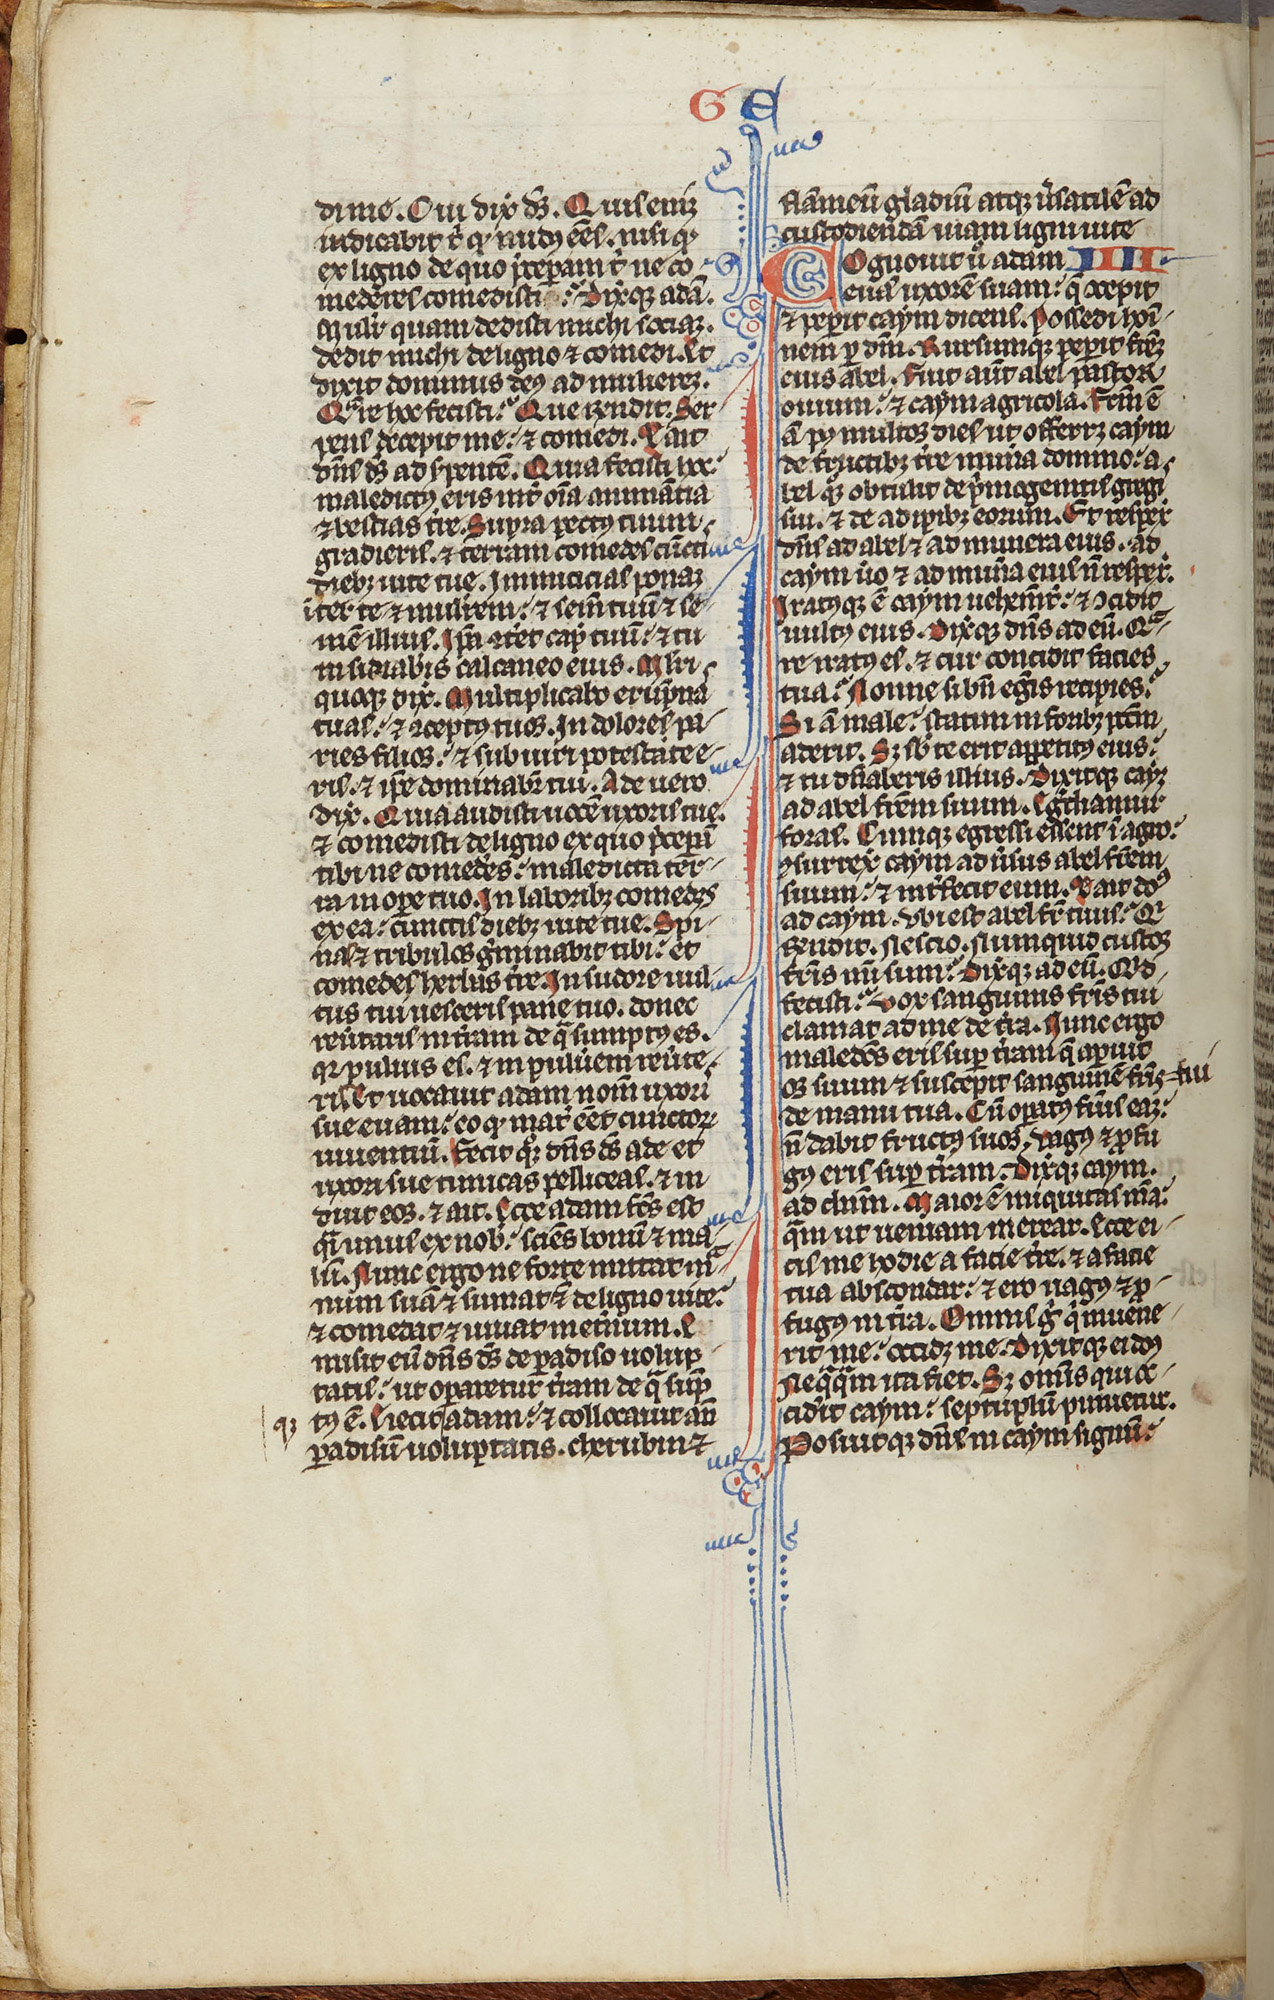 G E
di me. Cui dix̅ ds̅. Quis eniꝫ
indicauit t̅ ꝙ nudꝰ ee̅s. nisi ꝙ
ex ligno de quo p̅cepam̅ t̅ ne co
mederes comedisti. Dix̅qꝫ ada̅.
Muli̅r quam dedisti michi sociaꝫ.
dedit michi de ligno ⁊ comedi. Et
dixit dominus deꝰ ad muliereꝫ.
Qᵃre hoc fecisti. Que r̅ndit. Ser
pens decepit me. ⁊ comedi. Et ait
dn̅s ds̅ ad s̅pente̅. Quia fecisti hoc.
maledictꝰ eris int̅ oi̅a anima̅tia
⁊ bestias t̅re. Supra pectꝰ tuum
gradieris. ⁊ terram comedes cu̅cti
diebꝫ uite tue. Inimicicias ponaꝫ
i̅ter te ⁊ mulirem. ⁊ sem̅ tuu̅ ⁊ se
me̅ illius. Ip̅a ꝯter̅ cap̅ tuu̅. ⁊ tu
insidiabis calcaneo eius. Mli̅ri
quoqꝫ dix̅. Multiplicabo erup̅na
tuas. ⁊ ꝯceptꝰ tuos. In dolores pa
ries filios. ⁊ sub uiri potestate e
ris. ⁊ ip̅e dominab̅r tui. Ade uero
dix̅. Quia audisti uoce̅ uxoris tue.
⁊ comedisti de ligno ex quo p̅cepa̅
tibi ne comedes. maledicta ter
ra in oꝑe tuo. In laboribꝫ comedes
ex ea. cunctis diebꝫ uite tue. Spi
nas ⁊ tribulos g̅minabit tibi. et
comedes herbas t̅re. In sudore uul
tus tui uesceris pane tuo. donec
reu̅taris in t̅ram de qᵃ sumptꝰ es.
qꝛ puluis es. ⁊ in puluem reu̅te
ris. Et uocauit adam nom̅ uxori
sue euam. eo ꝙ mat̅ ee̅t cunctoꝝ
uiuentiu̅. Fecit qꝫ dn̅s ds̅ ade et
uxori sue tunicas pelliceas. ⁊ in
duit eos. ⁊ ait. Ecce adam fc̅s est
qⁱ unus ex nob̅. scie̅s bonu̅ ⁊ ma
lu̅. Nunc ergo ne forte mittat mᵃ
num sua̅ ⁊ sumat ⁊ de ligno uite.
⁊ comedat ⁊ uiuat in et̅num. E
misit eu̅ dn̅s ds̅ de ꝑadiso uolup
tatis. ut oꝑaretur t̅ram de qᵃ su̅p
tꝰ e̅. Eiecit adam. ⁊ collocauit an̅
qꝫ
ꝑadisu̅ uoluptatis. cherubin ⁊
fla̅meu̅ gladiu̅ atqꝫ u̅satile̅ ad
custodienda̅ uiam ligni uite
Cognouit u̅o adam IIII
eua̅ uxore̅ suam. q̅ ꝯcepit
⁊ peperit caym dicens. Possedi ho̅i
nem ꝑ dm̅. Rursumqꝫ peperit fr̅eꝫ
eius abel. Fuit aut̅ abel pastoꝝ
ouium. ⁊ caym agricola. Fcm̅ e̅
a̅ pꝰ multos dies ut offerrꝫ caym
de fructibꝫ t̅re mun̅a domino. a
bel qꝫ obtulit de p̅mogenitis gregi
sui. ⁊ de adipibꝫ eorum. Et respex̅
dn̅s ad abel ⁊ ad munera eius. ad
caym u̅o ⁊ ad mun̅a eius n̅ respex̅.
Iratꝰqꝫ e̅ caym uehem̅t̅. ⁊ ꝯcidit
uultꝰ eius. Dix̅qꝫ dn̅s ad eu̅. Qᵃ
re iratꝰ es. ⁊ cur concidit facies
tua. Nonne si bn̅ eg̅is recipies.
Si a̅ male. statim in foribꝫ pc̅m
aderit. Sꝫ sb̅ te erit appetitꝰ eius.
⁊ tu dn̅aberis illius. Dixitqꝫ cayꝫ
ad abel fr̅em suum. Eg̅diamur
foras. Cumqꝫ egressi essent i̅ agro.
ꝯsurrex̅ caym adu̅sus abel fr̅em
suum. ⁊ int̅fecit eum. Et ait do̅s
ad caym. Vbi est abel fr̅ tuus. Q
r̅ndit. Nescio. Numquid custos
fr̅is mi̅ sum. Dix̅qꝫ ad eu̅. Qͥd
fecisti. Vox sanguinis fr̅is tui
clamat ad me de t̅ra. Nunc ergo
maledc̅s eris suꝑ t̅ram q̅ aꝑuit
os suum ⁊ suscepit sanguine̅ fr̅is tui
de manu tua. Cu̅ oꝑatꝰ fu̅is eaꝫ.
n̅ dabit fructꝰ suos. Vagꝰ ⁊ ꝓfu
gꝰ eris suꝑ t̅ram. Dix̅qꝫ caym.
ad dnm̅. Maior e̅ iniquitas m̅a.
qᵃm ut ueniam merear. Ecce ei
cis me hodie a facie t̅re. ⁊ a facie
tua abscondar. ⁊ ero uagꝰ ⁊ ꝓ
fugꝰ in t̅ra. Omnis g̅ qⁱ inuene
rit me. occidꝫ me. Dixitqꝫ ei do̅s
Neqᵃqᵃm ita fiet. Sꝫ omn̅s qui oc
cid̅it caym. septuplu̅ punietur.
Posuitqꝫ dn̅s in caym signu̅.